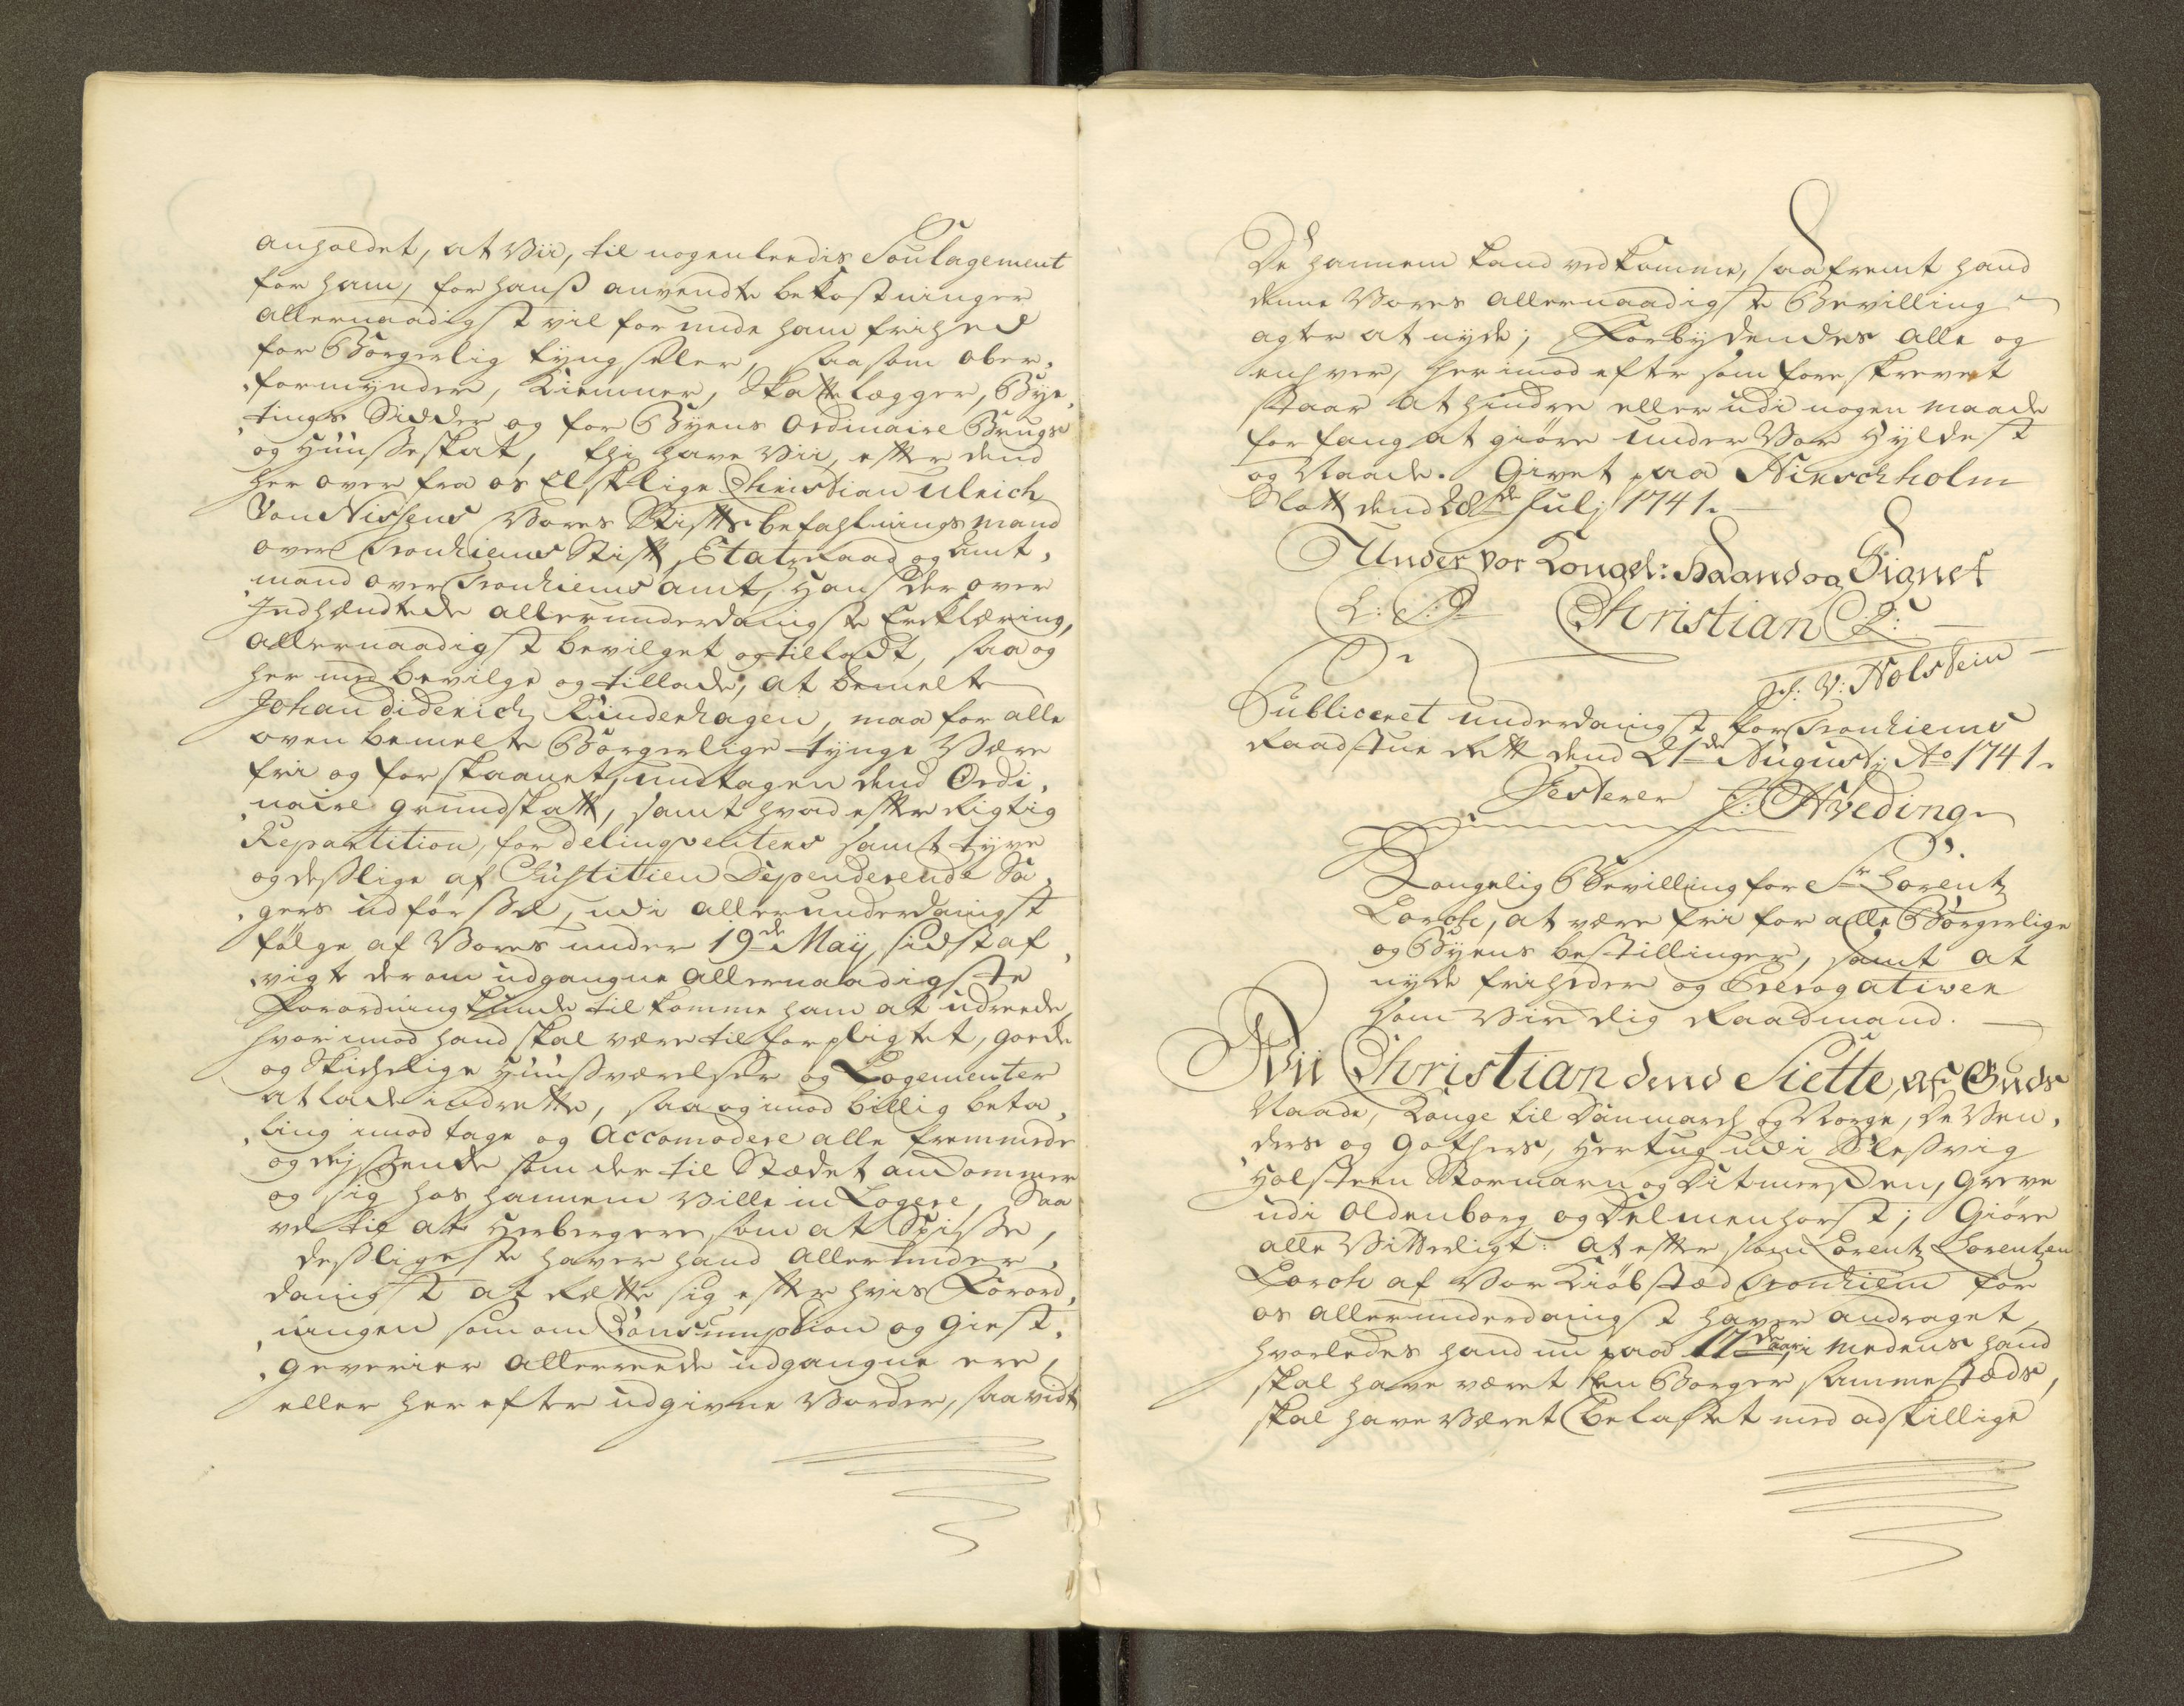 anholdet, at Vii, til nogenleedis Soulagement
for ham, for hanß anvendte bekostninger
allernaadigst vil forunde ham frihed
for Borgerlig tyngseler, saasom ober,
,formynder, Kiemner, Skattelægger, Bye,
,tings Sidder og for Byens Ordinaire Brugs
og Huusseskat, thj have Vii, efter dend
her over fra os Elskelige Christian Ulrich
Von Nissens Vores Stiftsbefahlnings mand
over Tronhiems Stift, Etatzraad og Amt,
,mand over Tronhiems amt, Hans der over
Indhændtede allerunderdanigste Erklæring,
allernaadigst bevilget og tilladt, saa og
her med bevilge og tillade, at bemelte
Johan diderich Kinderhagen, maa for alle
oven bemelte Borgerlige tynge Være
fri og forskaanet, undtagen dend Ordi,
,naire grundskatt, samt hvad efter Rigtig
Repartition, for delinqventers samt tyve
og deßlige af Justitien Dependerende Sa,
,gers udførßel, udi allerunderdanigst
følge af Vores under 19de Maij sidst af,
,vigte derom udgangne allernaadigste
Forordning kunde tilkomme ham at udreede,
hvorimod hand skal være tilforpligtet, goede
og Skichelige Huußværelser og Logementer
at lade indrette, saa og imod billig beta,
,ling imodtage og Accomodere alle fremmede
og reyssende som der til Stædet ankommer
og sig hos hannem Ville in Logere, Saa
vel til at Herbergere, som at Spisse,
deßligeste haver hand allerunder,
danigst at Rætte sig efter hvis Forord,
,ningen som om Consumption og Giest,
,geverier allereede udgangne ere,
eller her efter udgivne Vorder, saavidt
De hannem kand vedkomme, saafremt hand
denne Vores allernaadigste Bevilling
agter at nyde; Forbydendes alle og
enhver, her imod efter som foreskrevet
staar at hindre eller udi nogen maade
forfang at giøre under Vor Hyldest
og Naade. Givet paa Hirschholm
Slott dend 28de Julj 1741.
Under Vor Kongel: Haand og Signet
L: S:
Christian R:
J: V: Holstein
Publiceret underdanigst for Tronhiems
Raadstue Rett dend 21de Augustj Ao 1741.
Testerer J: Hveding
Kongelig Bevilling for Sr Lorentz
Lorch, at være fri for alle Borgerlige
og Byens bestillinger, samt at
nyde friheder og Prerogativer
som Virdelig Raadmand.
Vii Christian dend Siette, af Guds
Naade, Konge til Danmarch og Norge, de Ven,
,ders og Gothers, Hertug udi Sleßvig
Holsteen Stormarn og Ditmersken, Greve
udi Oldenborg og Delmenhorst; Giøre
alle Vitterligt: At efter som Lorentz Lorentzen
Lorch af Vor Kiøbstæd Tronhiem for
os allerunderdanigst haver andraget,
hvorledes hand nu paa 17de aar, i medens hand
skal have været en Borger sammestæds,
skal have Været belastet med adskillige